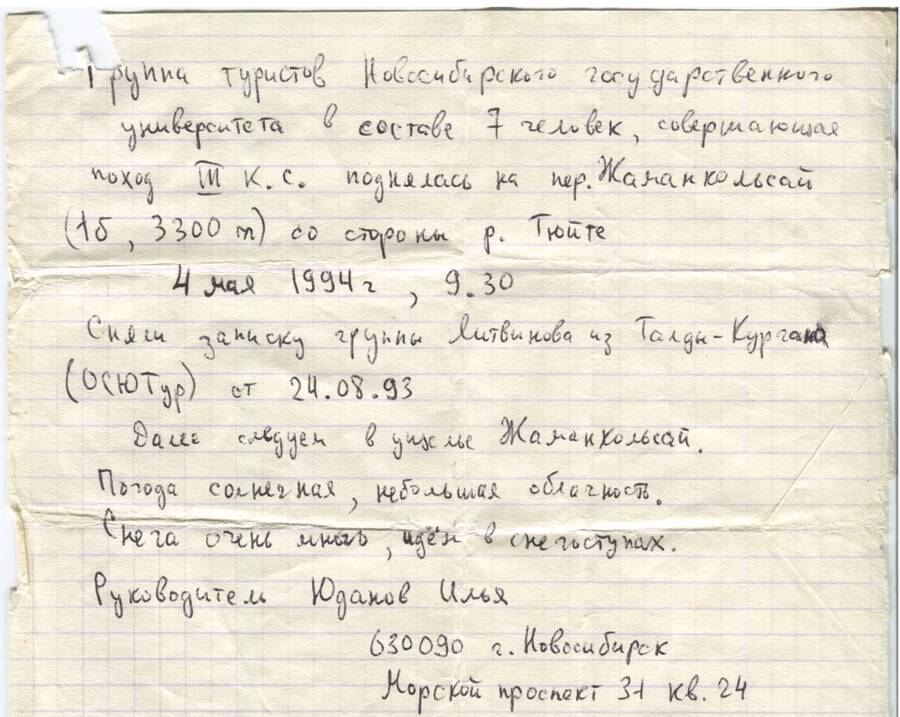 Группа туристов Новосибирского государственного
университета в составе 7 человек, совершающая
поход III К.С. поднялась на пер. Жаманкольсай
(1б, 3300 m) со стороны р. Тюйте
4 мая 1994 г, 9.30
Сняли записку группы Литвинова из Талды-Кургана
(ОСЮТур) от 24.08.93
Далее следуем в ущелье Жаманкольсай.
Погода солнечная, небольшая облачность.
Снега очень много, идём в снегоступах.
Руководитель Юданов Илья
630090 г. Новосибирск
Морской проспект 31 кв. 24